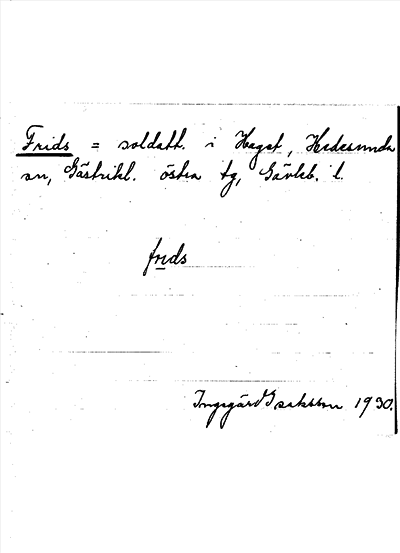 Frids = soldatt. i Hagst, Hedesunda
sn, Gästrikl. östra tg, Gävleb. l.
frids
Ingegärd Isaksson 1930.